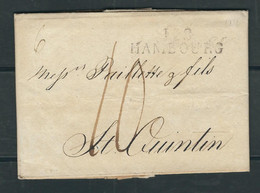 129
HAMBOURG
6
Mess.rs Paillette & fils
10
St. Quintin